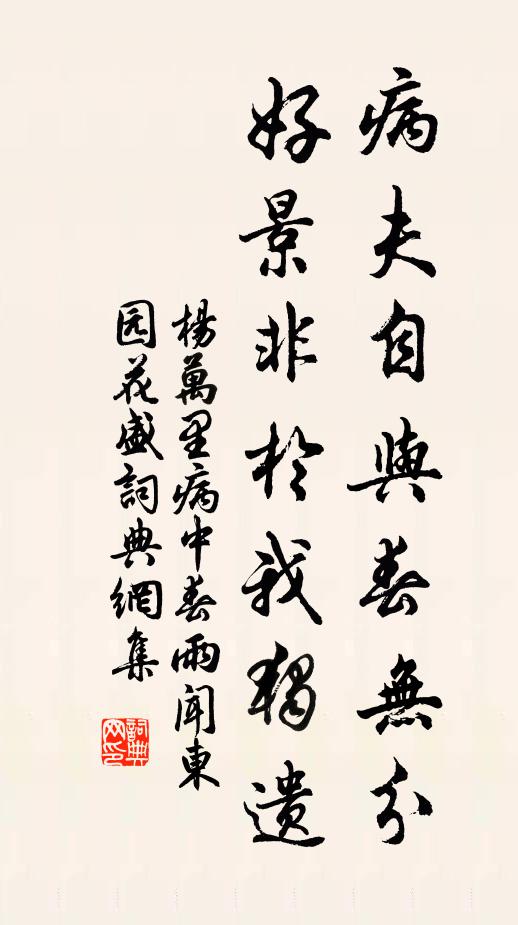 病夫自與春無分
好景非於我獨遺
楊萬里病中春雨聞東
园花盛詞典網集
詞典
网印